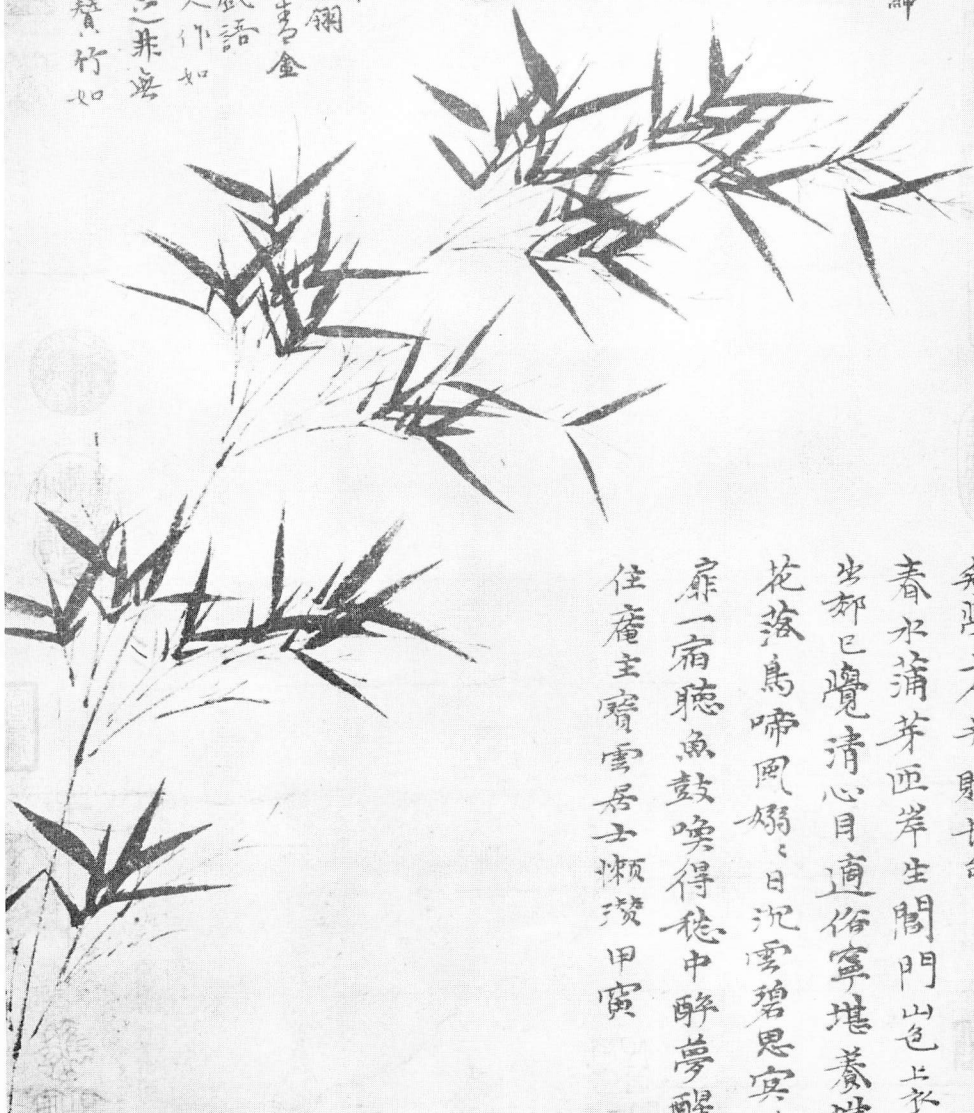 春水蒲芽匝岸生閶門山色上衣
出郊已覺清心目適俗寧堪養
花落鳥啼風嫋〻日沉雲碧思冥
扉一宿聽魚鼓喚得愁中醉夢醒
住菴主寶雲居士懶瓚甲寅
青金
戲語
人作如
非無
贊竹如